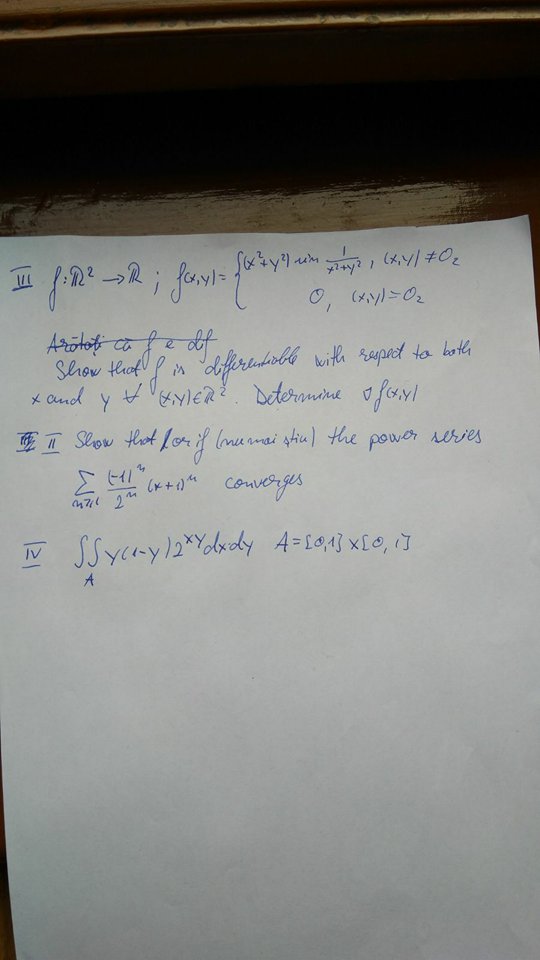 III f: ℝ² → ℝ ; f(x,y) = { (x²+y²) sin 1/(x²+y²), (x,y) ≠ 0₂
0, (x,y) = 0₂
Arătați că f e dif
Show that f is differentiable with respect to both
x and y ∀ (x,y)∈ℝ². Determine ∇f(x,y)
II Show that / or if (nu mai știu) the power series
∑ n≥1 (-1)ⁿ/2ⁿ (x+1)ⁿ converges
IV ∬_A y(1-y)2^{xy} dxdy A=[0,1]×[0,1]